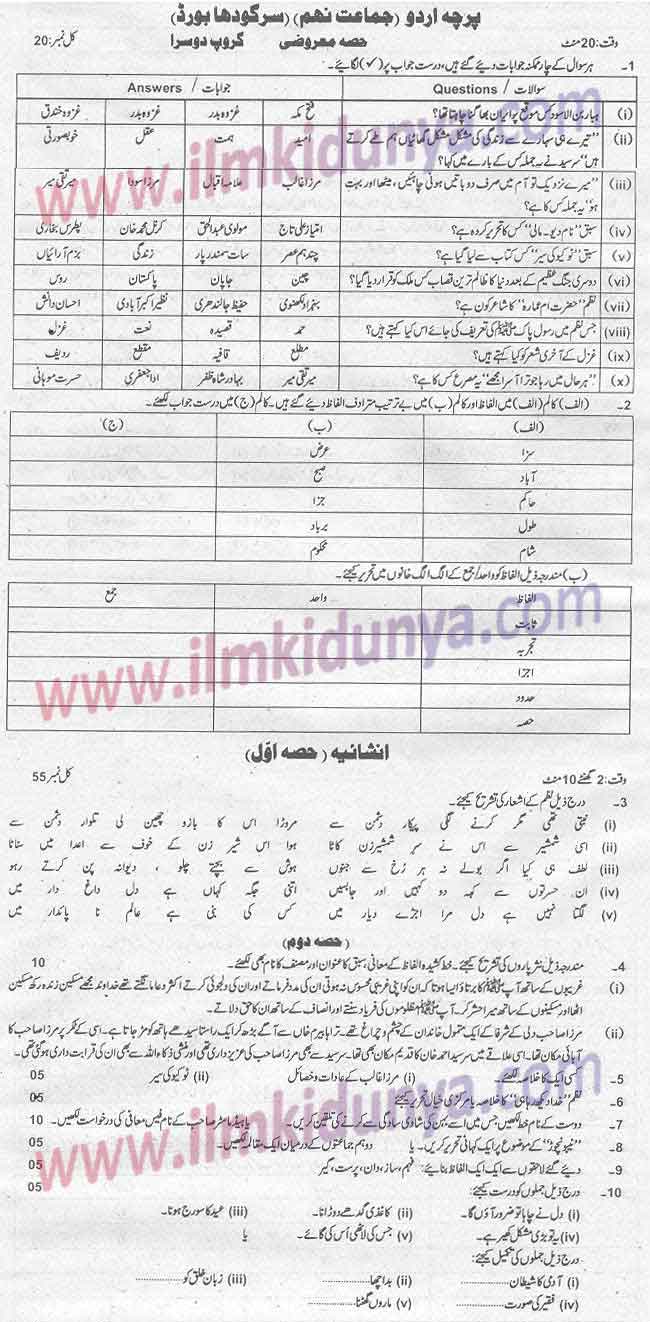 پرچہ اردو (جماعت نہم) (سرگودھا بورڈ)
وقت: 20 منٹ حصہ معروضی گروپ دوسرا کل نمبر: 20
1۔ ہر سوال کے چار ممکنہ جوابات دیے گئے ہیں، درست جواب پر (✓) لگائیے۔
سوالات / Questions جوابات / Answers
(i) ہبار بن الاسود کس موقع پر ایران بھاگنا چاہتا تھا؟ فتح مکہ غزوہ بدر غزوہ بدر غزوہ خندق
(ii) "تیرے ہی سہارے سے زندگی کی مشکل مشکل گھاٹیاں ہم طے کرتے ہیں" سرسید نے یہ جملہ کس کے بارے میں کہا؟ امید ہمت عقل خوبصورتی
(iii) "میرے نزدیک تو آم میں صرف دو باتیں ہونی چاہئیں، میٹھا اور بہت ہو" یہ جملہ کس کا ہے؟ مرزا غالب علامہ اقبال مرزا سودا میر تقی میر
(iv) سبق "نام دیو۔ مالی" کس کا تحریر کردہ ہے؟ امتیاز علی تاج مولوی عبدالحق کرنل محمد خان پطرس بخاری
(v) سبق "ٹوکیو کی سیر" کس کتاب سے لیا گیا ہے؟ چند ہم عصر سات سمندر پار زندگی بزم آرائیاں
(vi) دوسری جنگ عظیم کے بعد دنیا کا ظالم ترین قصاب کس ملک کو قرار دیا گیا؟ چین جاپان پاکستان روس
(vii) نظم "حضرت ام عمارہ" کا شاعر کون ہے؟ بہزاد لکھنوی حفیظ جالندھری نظیر اکبر آبادی احسان دانش
(viii) جس نظم میں رسول پاک ﷺ کی تعریف کی جائے اس کیا کہتے ہیں؟ حمد قصیدہ نعت غزل
(ix) غزل کے آخری شعر کو کیا کہتے ہیں؟ مطلع قافیہ مقطع ردیف
(x) "ہر حال میں رہا جو ترا آسرا مجھے" یہ مصرع کس کا ہے؟ میر تقی میر بہادر شاہ ظفر ادا جعفری حسرت موہانی
2۔ (الف) کالم (الف) میں الفاظ اور کالم (ب) میں بے ترتیب مترادف الفاظ دیے گئے ہیں۔ کالم (ج) میں درست جواب لکھئے۔
(الف) (ب) (ج)
سزا عرض
آباد صبح
حاکم جزا
طول برباد
شام محکوم
(ب) مندرجہ ذیل الفاظ کو واحد/جمع کے الگ الگ خانوں میں تحریر کیجئے۔
الفاظ واحد جمع
ثابت
تجربہ
اجزا
حدود
حصہ
انشائیہ (حصہ اوّل)
وقت: 2 گھنٹے 10 منٹ کل نمبر 55
3۔ درج ذیل نظم کے اشعار کی تشریح کیجئے۔
(i) نہتی تھی مگر کرنے لگی پیکار دشمن سے مروڑا اس کا بازو چھین لی تلوار دشمن سے
(ii) اسی شمشیر سے اس نے سر شمشیرزن کاٹا ہوا اس شیر زن کے خوف سے اعدا میں سناٹا
(iii) لطف ہی کیا اگر بولے نہ ہر رخ سے جنوں ہوش سے بچتے چلو، دیوانہ پن کرتے رہو
(iv) ان حسرتوں سے کہہ دو کہیں اور جابسیں اتنی جگہ کہاں ہے دل داغ دار میں
(v) لگتا نہیں ہے دل مرا اجڑے دیار میں کس کی بنی ہے عالم نا پائدار میں
(حصہ دوم)
4۔ مندرجہ ذیل نثر پاروں کی تشریح کیجئے۔ خط کشیدہ الفاظ کے معانی، سبق کا عنوان اور مصنف کا نام بھی لکھئے۔ 10
(i) غریبوں کے ساتھ آپ ﷺ کا برتاؤ ایسا ہوتا کہ ان کو اپنی غریبی محسوس نہ ہوتی ان کی مدد فرماتے اور ان کی دلجوئی کرتے اکثر دعا مانگتے تھے خداوند مجھے مسکین زندہ رکھ مسکین
اٹھا اور مسکینوں کے ساتھ میرا حشر کر۔ آپ ﷺ مظلوموں کی فریاد سنتے اور انصاف کے ساتھ ان کا حق دلاتے۔
(ii) مرزا صاحب دلی کے شرفا کے ایک متمول خاندان کے چشم و چراغ تھے۔ تراہا بیرم خاں سے آگے بڑھ کر ایک راستا سیدھے ہاتھ کو مڑ جاتا ہے۔ اسی کے نکڑ پر مرزا صاحب کا
آبائی مکان تھا۔ اسی علاقے میں سرسید احمد خان کا قدیم مکان بھی تھا۔ سرسید سے بھی مرزا صاحب کی عزیز داری تھی اور منشی ذکاء اللہ سے بھی ان کی قرابت داری ہوگئی تھی۔
5۔ کسی ایک کا خلاصہ لکھئے۔ (i) مرزا غالب کے عادات و خصائل (ii) ٹوکیو کی سیر 05
6۔ نظم "خدا دیکھ رہا ہے" کا خلاصہ یا مرکزی خیال تحریر کیجئے 05
7۔ دوست کے نام خط لکھیں جس میں اسے، بہن کی شادی سادگی سے کرنے کی تلقین کریں۔ یا ہیڈ ماسٹر صاحب کے نام فیس معافی کی درخواست لکھیں۔ 10
8۔ "نیچو نچوڑ" کے موضوع پر ایک کہانی تحریر کریں۔ یا دو ہم جماعتوں کے درمیان ایک مکالمہ لکھیں۔ 05
9۔ دیے گئے لاحقوں سے ایک ایک الفاظ بنائیے: فہم، ساز، دان، پرست، گیر 05
10۔ درج ذیل جملوں کو درست کیجئے: 05
(i) دل نے چاہا تو ضرور آؤں گا۔ (ii) کاغذی گدھے دوڑانا۔ (iii) عید کا سورج ہونا۔
(iv) یہ تو بڑی مشکل کھیر ہے۔ (v) جس کی لاٹھی اُس کی گائے۔ یا
درج ذیل جملوں کی تکمیل کیجئے:
(i) آدمی کا شیطان ............ (ii) بد اچھا ............ (iii) زبان خلق کو ............
(iv) فقیر کی صورت ............ (v) ماروں گھٹنا ............
www.ilmkidunya.com
www.ilmkidunya.com
www.ilmkidunya.com